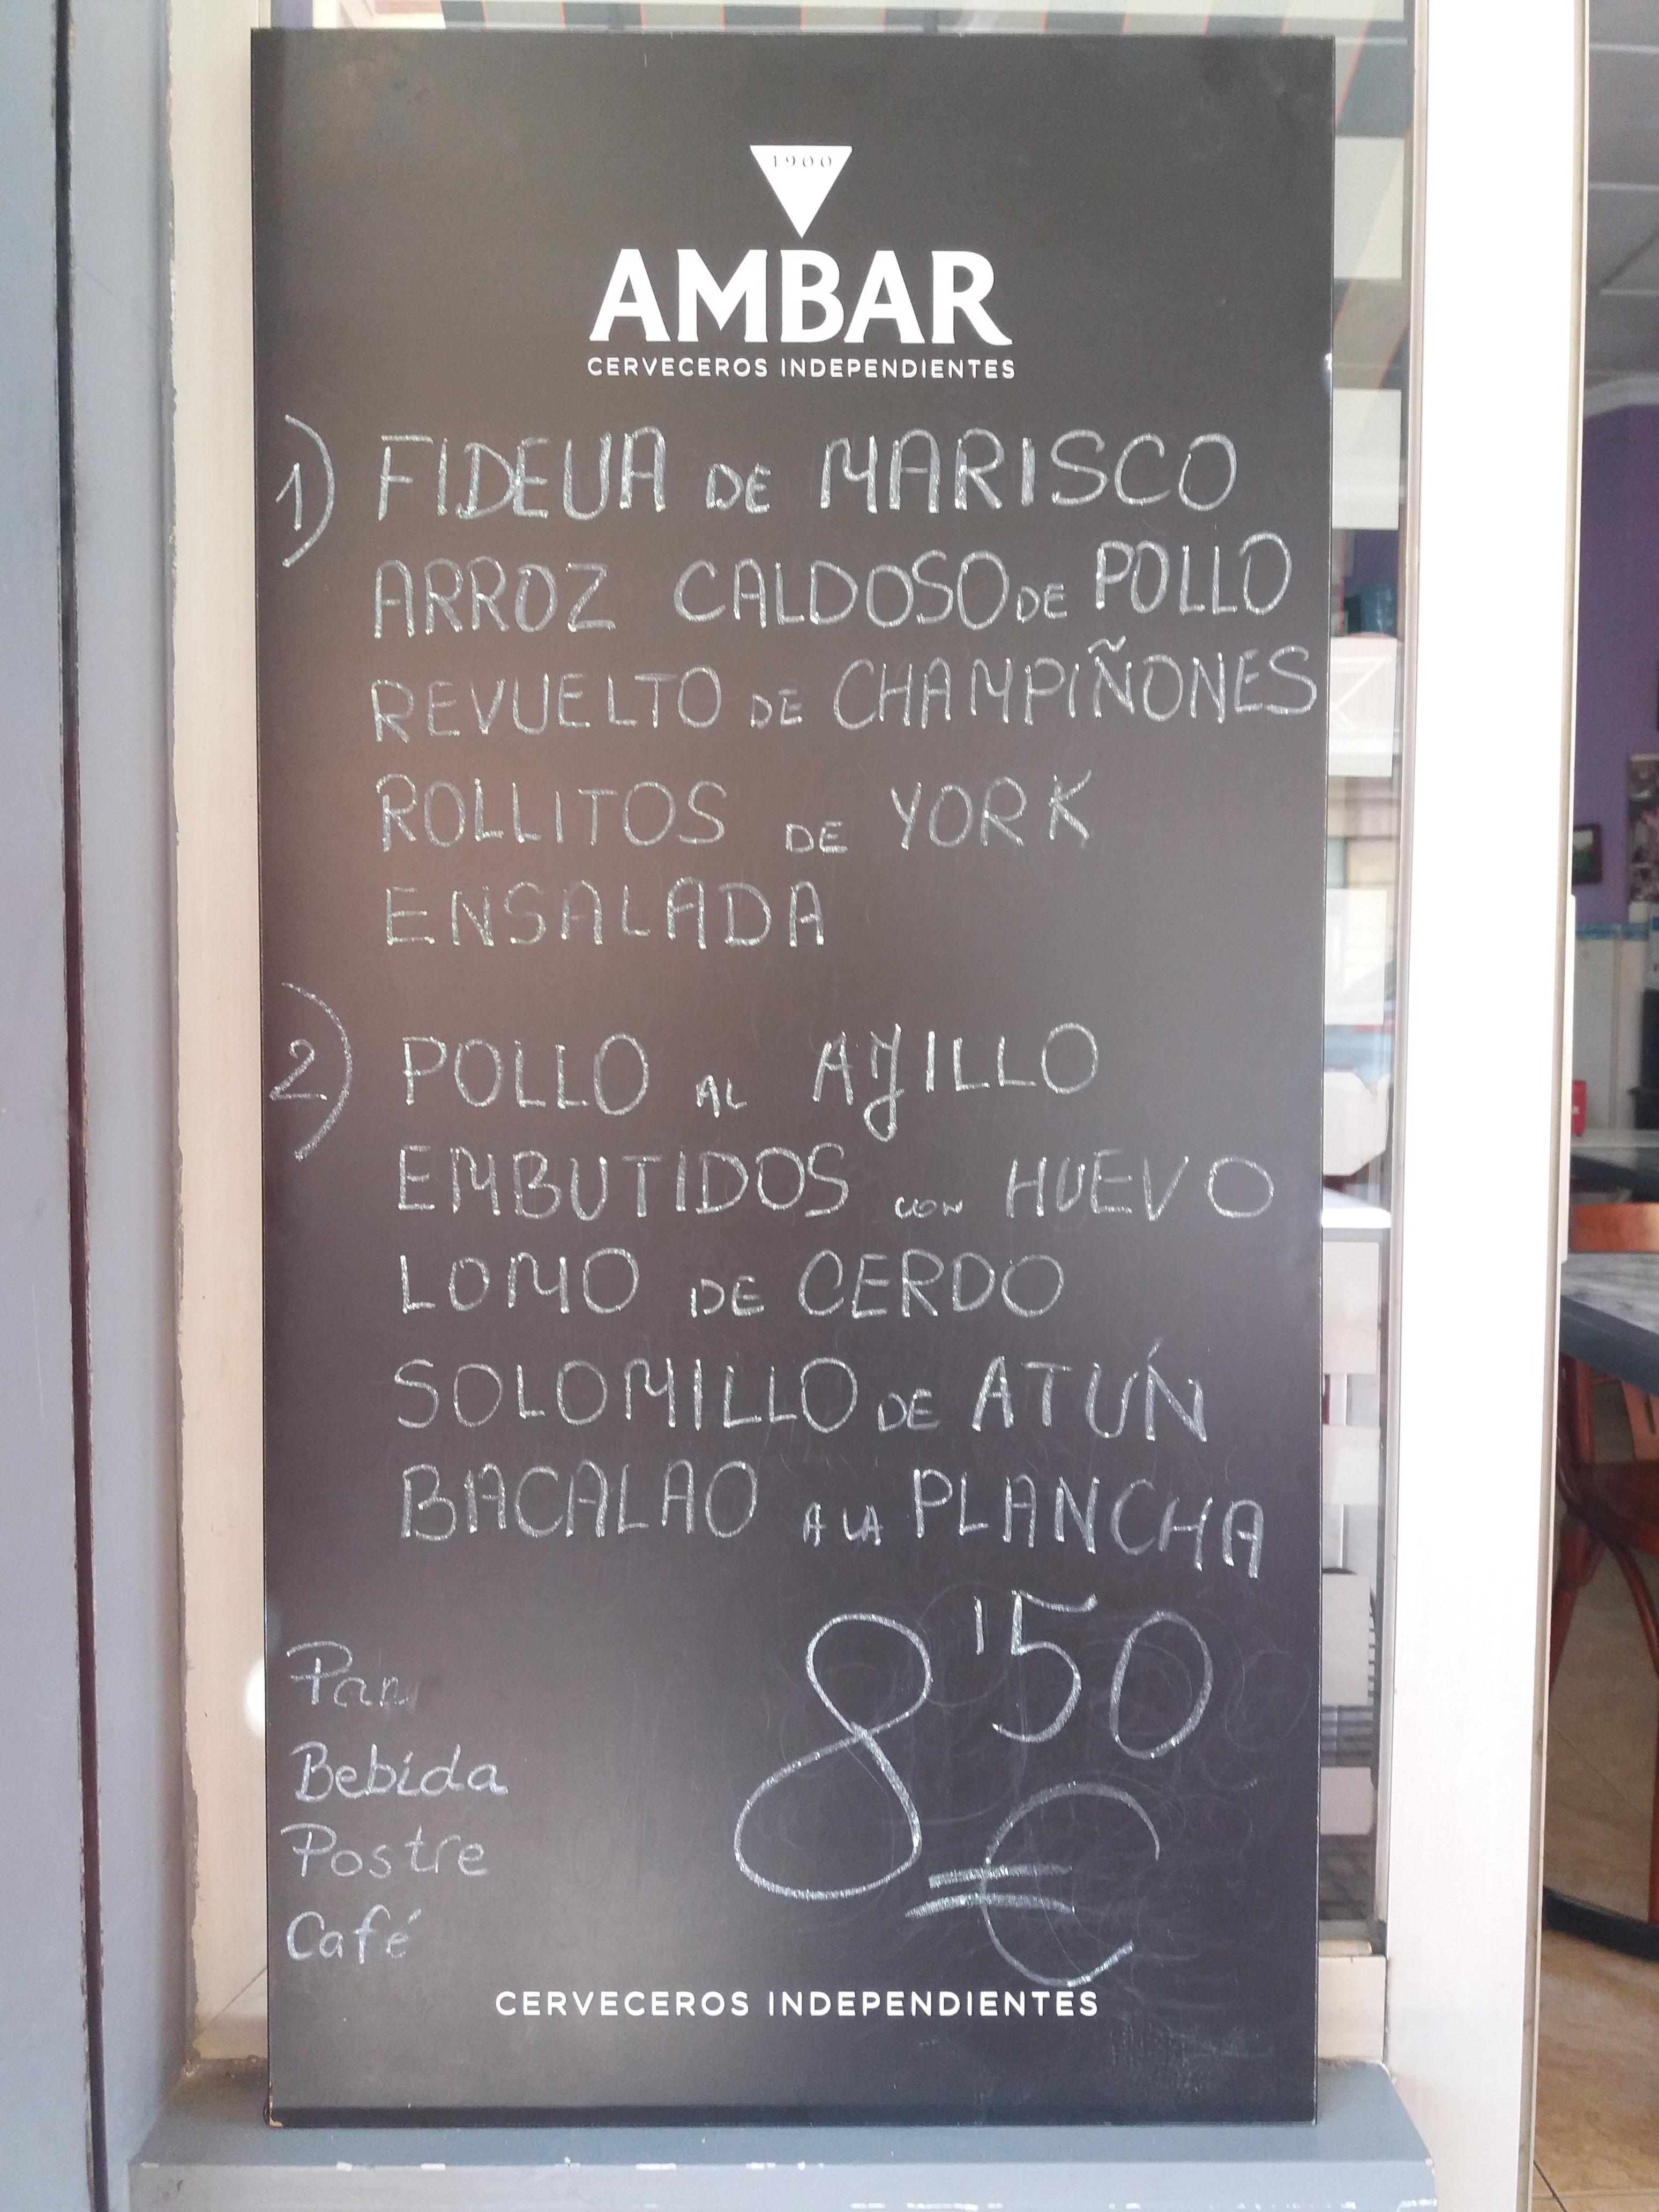 1900
AMBAR
CERVECEROS INDEPENDIENTES
1) FIDEUA DE MARISCO
ARROZ CALDOSO DE POLLO
REVUELTO DE CHAMPIÑONES
ROLLITOS DE YORK
ENSALADA
2) POLLO AL AJILLO
EMBUTIDOS CON HUEVO
LOMO DE CERDO
SOLOMILLO DE ATÚN
BACALAO A LA PLANCHA
8'50
€
Pan
Bebida
Postre
Café
CERVECEROS INDEPENDIENTES